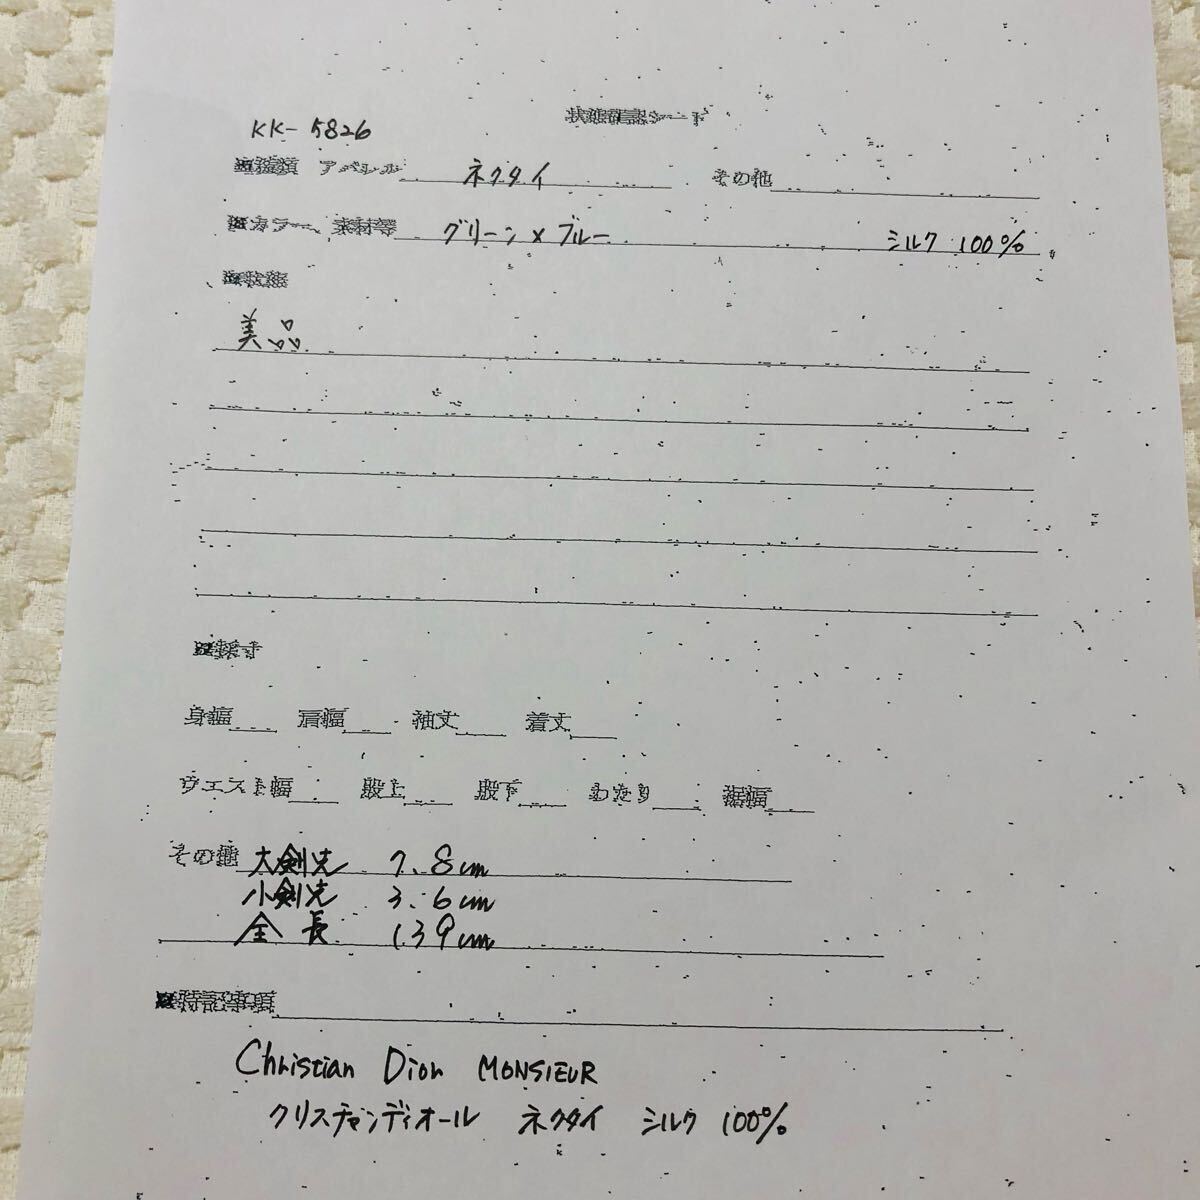 状態確認シート
KK-5826
■種類 アパレル ネクタイ その他
■カラー、素材等 グリーン×ブルー シルク 100%
■状態
美品
■採寸
身幅 肩幅 袖丈 着丈
ウエスト幅 股上 股下 わたり 裾幅
その他 大剣先 7.8cm
小剣先 3.6cm
全長 139cm
■特記事項
Christian Dior MONSIEUR
クリスチャンディオール ネクタイ シルク 100%